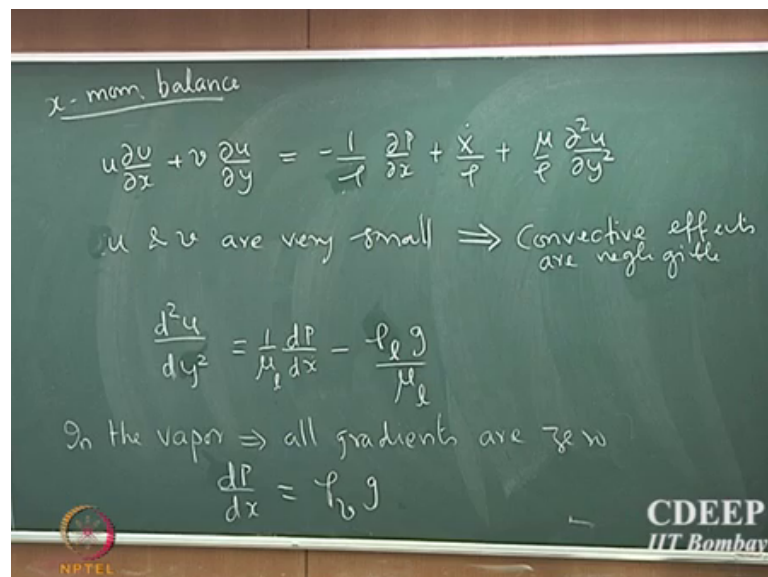 x-mom. balance
u ∂u/∂x + v ∂u/∂y = - 1/ρ ∂P/∂x + Ẋ/ρ + μ/ρ ∂²u/∂y²
u & v are very small ⇒ Convective effects
are negligible
d²u/dy² = 1/μₗ dP/dx - ρₗ g/μₗ
In the vapor ⇒ all gradients are zero
dP/dx = ρᵥ g
CDEEP
IIT Bombay
NPTEL